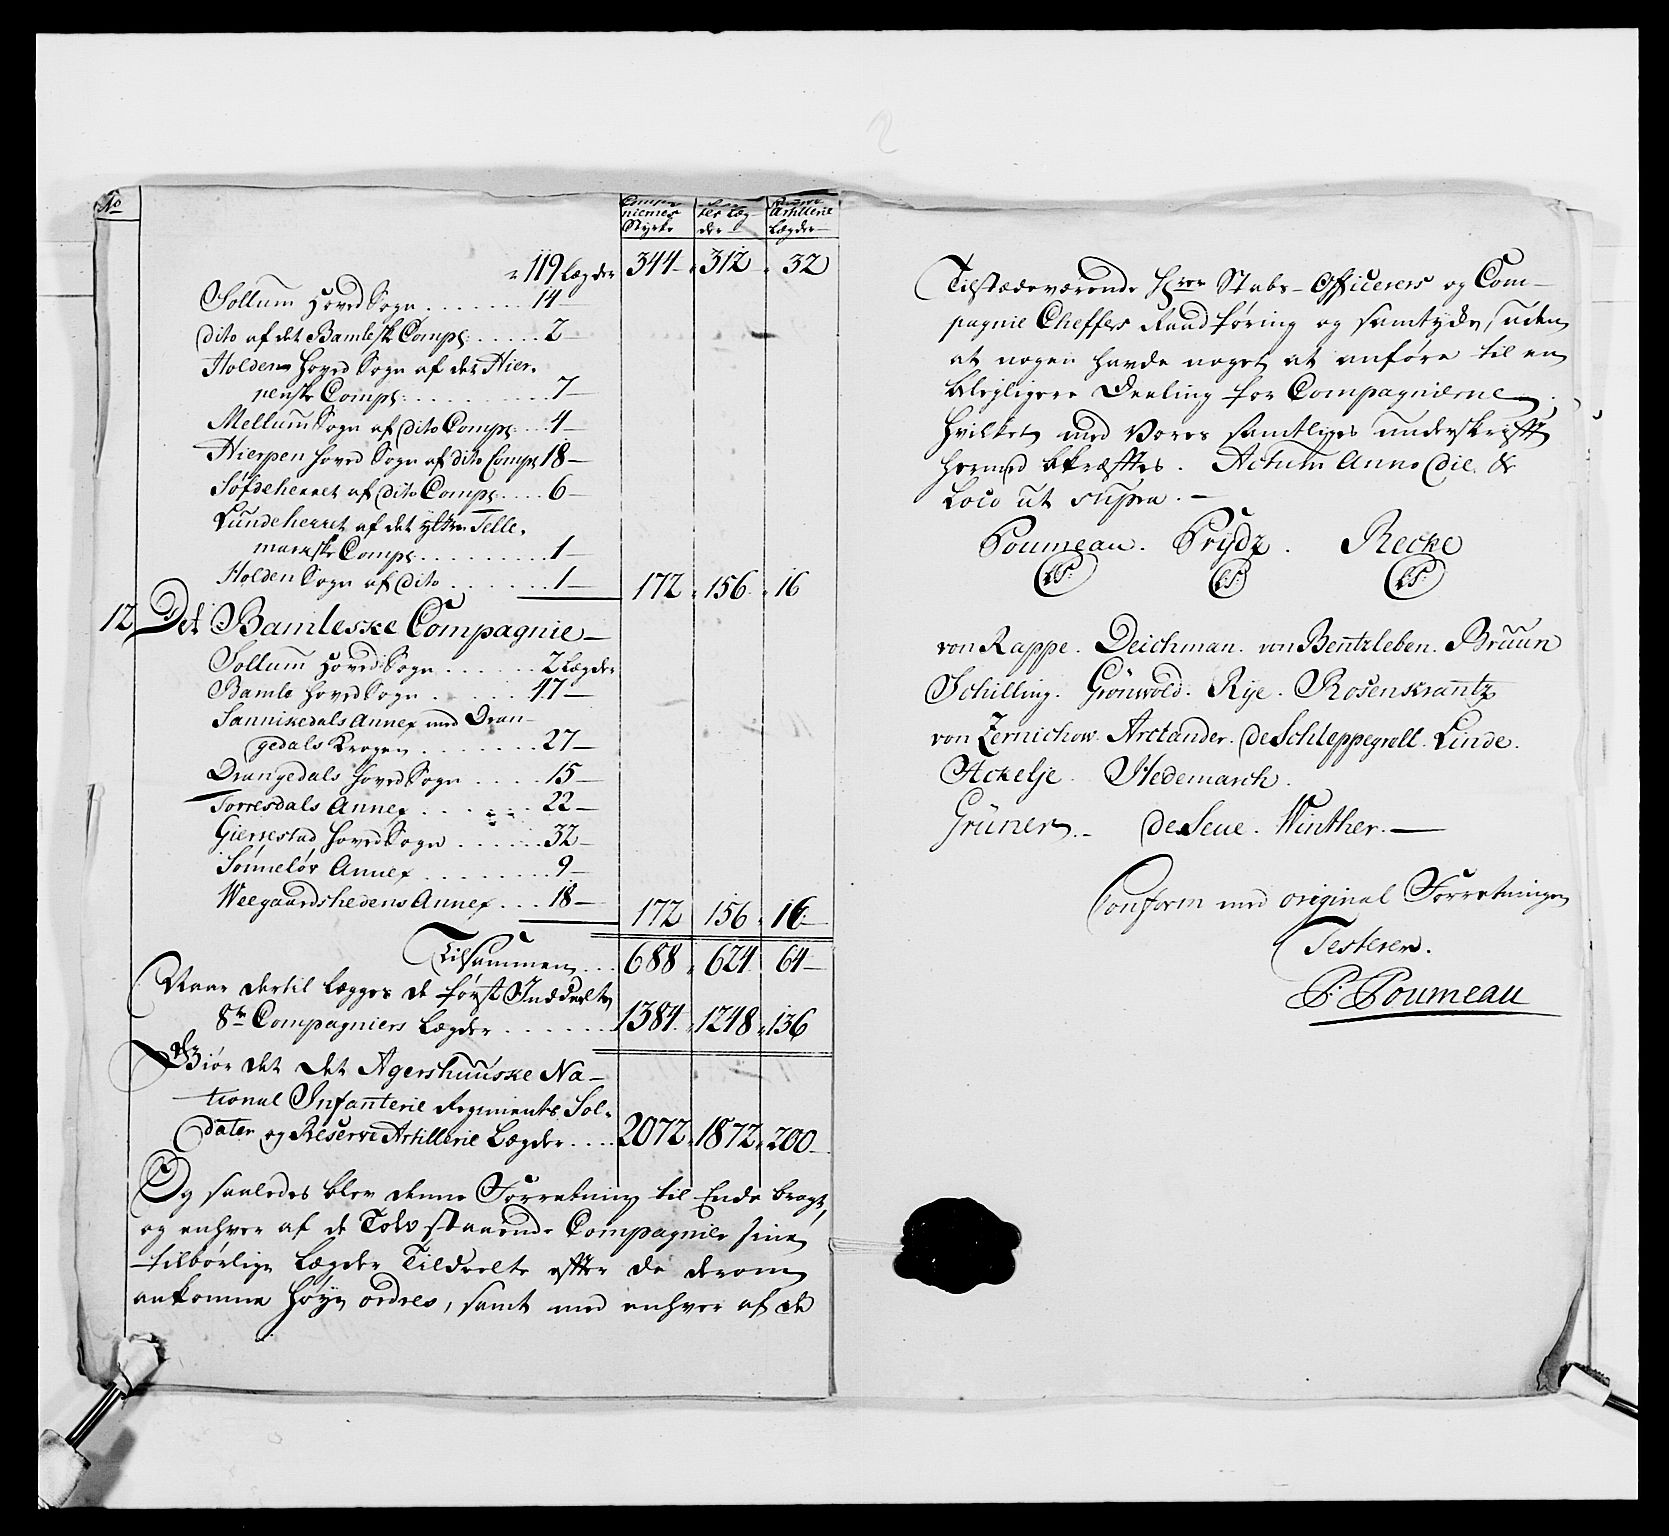 No
Compag
niernes
Styrke
ter Læg
der
Reserve
Artillerie
Lægder
119 Lægder 344 312 32
Sollum Hoved Sogn . . . . . . . 14
dito af det Bamlesk Comps: . . . . . 2
Holdens Hoved Sogn af det Hier-
penske Comps: . . . . . . . . . 7
Mellum Sogn af dito Comps: . . 4
Hierpen Hoved Sogn af dito Comps 18
Søfdeherret af dito Comps . . . . 6
Lundeherret af det yttre Telle-
markske Comps . . . . . . . . 1
Holden Sogn af dito . . . . . . 1 172 156 16
12 Det Bamleske Compagnie
Sollum Hoved Sogn . . . . . . 2 Lægder
Bamle Hoved Sogn . . . . . . 47
Sannikedals Annex med Dran-
gedals Krogen . . . . . . . 27
Drangedals Hoved Sogn . . . . 15
Torresdals Annex . . . . . . 22
Gierrestad Hoved Sogn . . . . . . 32
Sønneløv Annex . . . . . . . . 9
Weegaardshedens Annex . . . 18 172 156 16
Tilsammen . . 688 624 64
Naar dertil lægges de først Inddeelte
8te Compagniers Lægder . . . . . . 1384 1248 136
Giør det det Agershuuske Na-
tional Infanterie Regiments Sol-
dater og Reserve Artillerie Lægder . . . . 2072 1872 200
Og saaledes blev denne Forretning til Ende bragt,
og enhver af de Tolv staaende Compagnier sine
tilbørlige Lægder Tildeelte efter de derom
ankomne høye ordres, samt med enhver af de
Tilstædeværende Hrer Stabs-Officerers og Com-
pagnie Cheffers Raadføring og samtykke, uden
at nogen havde noget at anføre til en
beleyligere Deeling for Compagnierne,
hvilket med Vores samtliges underskrifft
hermed bekræfftes. Actum Anno Die &
Loco ut supra.
Poumeau. Prydz. Recke
LS: LS: LS:
von Rappe. Deichman. von Bentzleben. Bruun
Schilling. Grönwold. Rye. Rosenkrantz
von Zernichow. Arctander. de Schleppegrell. Linde.
Ackelje. Hedemarch.
Grüner. de Seue. Winther.
Conform med original Forretningen
Testerer.
P: Poumeau